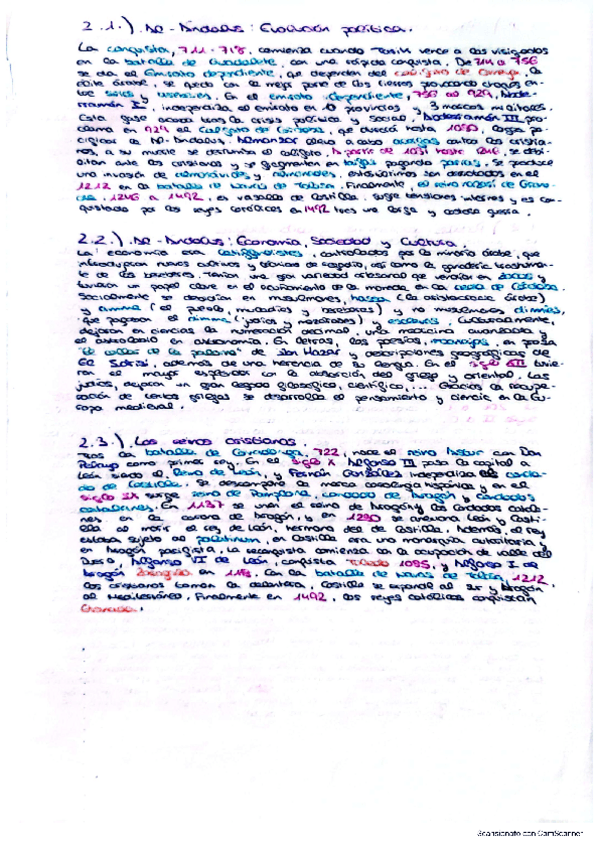 2.1.) Al-Ándalus: Evolución política.
La conquista, 711-718, comienza cuando Tarik vence a los visigodos
en la batalla de Guadalete, con una rápida conquista. De 714 a 756
se da el Emirato dependiente, que dependen del califato de Omeya, la
élite árabe, se queda con la mejor parte de las tierras provocando choques en-
tre sirios y bereberes. En el emirato independiente, 756 al 929, Abde-
rramán I, incorporiza el emirato en 10 provincias y 3 marcas militares.
Esta fase acaba tras la crisis política y social, Abderramán III pro-
clama en 929 el Califato de Córdoba, que durará hasta 1030, campa
pacificas a Al-Ándalus. Almanzor lleva a cabo aceifas contra los cristia-
nos, a su muerte se derrumba el califato. A partir de 1031 hasta 1246, se debi-
litan ante los cristianos y se fragmentan en taifas pagando parias. Se produce
una invasión de almorávides y almohades, estos últimos son derrotados en el
1212 en la batalla de Navas de Tolosa. Finalmente, el reino nazarí de Grana-
da, 1246 a 1492, es vasallo de Castilla, surge tensiones internas y es con-
quistado por los reyes católicos en 1492 tras una larga y costosa guerra.
2.2.) Al-Ándalus: Economía, Sociedad y Cultura.
La economía era latifundista, controlados por la minoría árabe, que
introdujeron nuevos cultivos y técnicas de regadío, así como la ganadería trashuman-
te de los bereberes. Tenían una gran variedad artesanal que vendían en zocos y
tuvieron un papel clave en el acuñamiento de la moneda en la ceca de Córdoba.
Socialmente se dividían en musulmanes, hassa (la aristocracia árabe)
y amma (el pueblo, muladíes y bereberes) y no musulmanes dimmíes,
que pagaban el dimma (judíos y mozárabes) y esclavos. Culturalmente,
dejaron en ciencias la numeración decimal, una medicina avanzada y
el astrolabio en astronomía. En letras, las poesías, moaxajas, en prosa
"El collar de la paloma" de Ibn Hazar y descripciones geográficas de
El Idrisi, además de una herencia de su lengua. En el siglo XII tuvie-
ron el mayor esplendor con la absorción del griego y oriental. Los
judíos, dejaron un gran legado filosófico, científico,... Gracias a la recupe-
ración de textos griegos se desarrolla el pensamiento y ciencia en la Eu-
ropa medieval.
2.3.) Los reinos cristianos.
Tras la batalla de Covadonga, 722, nace el reino Astur con Don
Pelayo como primer rey. En el siglo X Alfonso III pasa la capital a
León siendo el Reino de León, y Fernán González independiza el conda-
do de Castilla. Se descompone la marca carolingia hispánica y en el
siglo IX surge reino de Pamplona, condado de Aragón y condados
catalanes. En 1137 se unen el reino de Aragón y los condados catala-
nes en la corona de Aragón, y en 1230 se anexiona León y Casti-
lla al morir el rey de León, hermano del de Castilla. Además, el rey
estaba sujeto al palatinum, en Castilla era una monarquía autoritaria y
en Aragón pactista. La reconquista comienza con la ocupación de valle del
Duero, Alfonso VI de León, conquista Toledo 1085, y Alfonso I de
Aragón Zaragoza en 1118. Con la batalla de Navas de Tolosa, 1212,
los cristianos toman la delantera, Castilla se expande al sur y Aragón
al Mediterráneo. Finalmente en 1492, los reyes católicos conquistan
Granada.
Scansionato con CamScanner